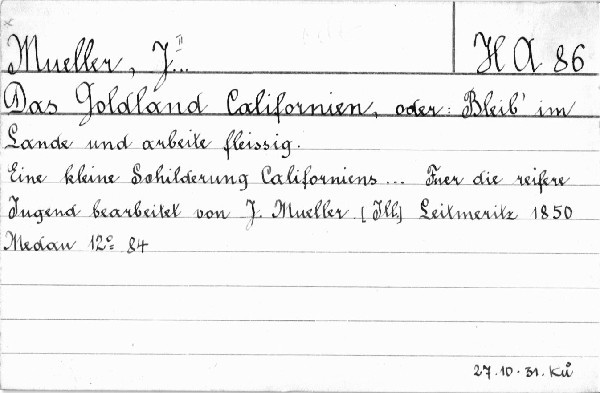 Mueller, J... II
H A 86
Das Goldland Californien, oder: Bleib' im
Lande und arbeite fleissig.
Eine kleine Schilderung Californiens... Fuer die reifere
Jugend bearbeitet von J. Mueller. [Ill.] Leitmeritz 1850
Medau 12° 84
27.10.31. Ků